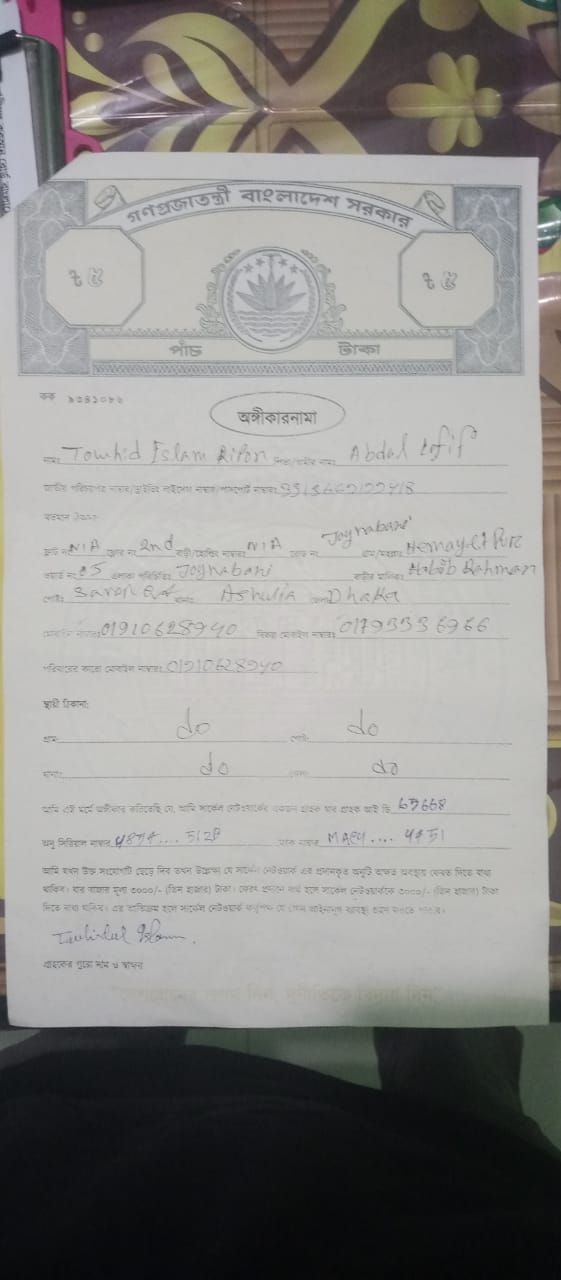 গণপ্রজাতন্ত্রী বাংলাদেশ সরকার
৳ ৫ ৳ ৫
পাঁচ টাকা
কক ৯৩৪১০৮৬
অঙ্গীকারনামা
নামঃ Towhid Islam Ripon পিতা/স্বামীর নামঃ Abdul
জাতীয় পরিচয়পত্র নাম্বার/ড্রাইভিং লাইসেন্স নাম্বার/পাসপোর্ট নাম্বারঃ
ফ্ল্যাট নংঃ N/A ফ্লোর নং 2nd বাড়ী/হোল্ডিং নাম্বারঃ N/A রোড নং Joynabari গ্রাম/মহল্লাঃ
ওয়ার্ড নংঃ 05 এলাকা পরিচিতিঃ Joynabari বাড়ীর মালিকঃ Habib Rahman
পোষ্টঃ থানাঃ Ashulia জেলাঃ Dhaka
মোবাইল নাম্বারঃ 01910628940 বিকল্প মোবাইল নাম্বারঃ 01793336966
পরিবারের কারো মোবাইল নাম্বারঃ 01910628940
স্থায়ী ঠিকানা:
গ্রাম: do পোষ্ট: do
থানাঃ do জেলা: do
আমি এই মর্মে অঙ্গীকার করিতেছি যে, আমি সার্কেল নেটওয়ার্কের একজন গ্রাহক যার গ্রাহক আই ডি 65668
অনু সিরিয়াল নাম্বার 4854.... 512B ম্যাক নাম্বার MAC4.... 4451
আমি যখন উক্ত সংযোগটি ছেড়ে দিব তখন উল্লেক্ষ্য যে সার্কেল নেটওয়ার্ক এর প্রদানকৃত অনুটি অক্ষত অবস্থায় ফেরত দিতে বাধ্য
থাকিব। যার বাজার মূল্য ৩০০০/- (তিন হাজার) টাকা। ফেরত প্রদানে ব্যর্থ হলে সার্কেল নেটওয়ার্ককে ৩০০০/- (তিন হাজার) টাকা
দিতে বাধ্য থাকিব। এর ব্যতিক্রম হলে সার্কেল নেটওয়ার্ক কর্তৃপক্ষ যে কোন আইনানুগ ব্যবস্থা গ্রহণ করতে পারবে।
Towhidul Islam.
গ্রাহকের পুরো নাম ও স্বাক্ষর